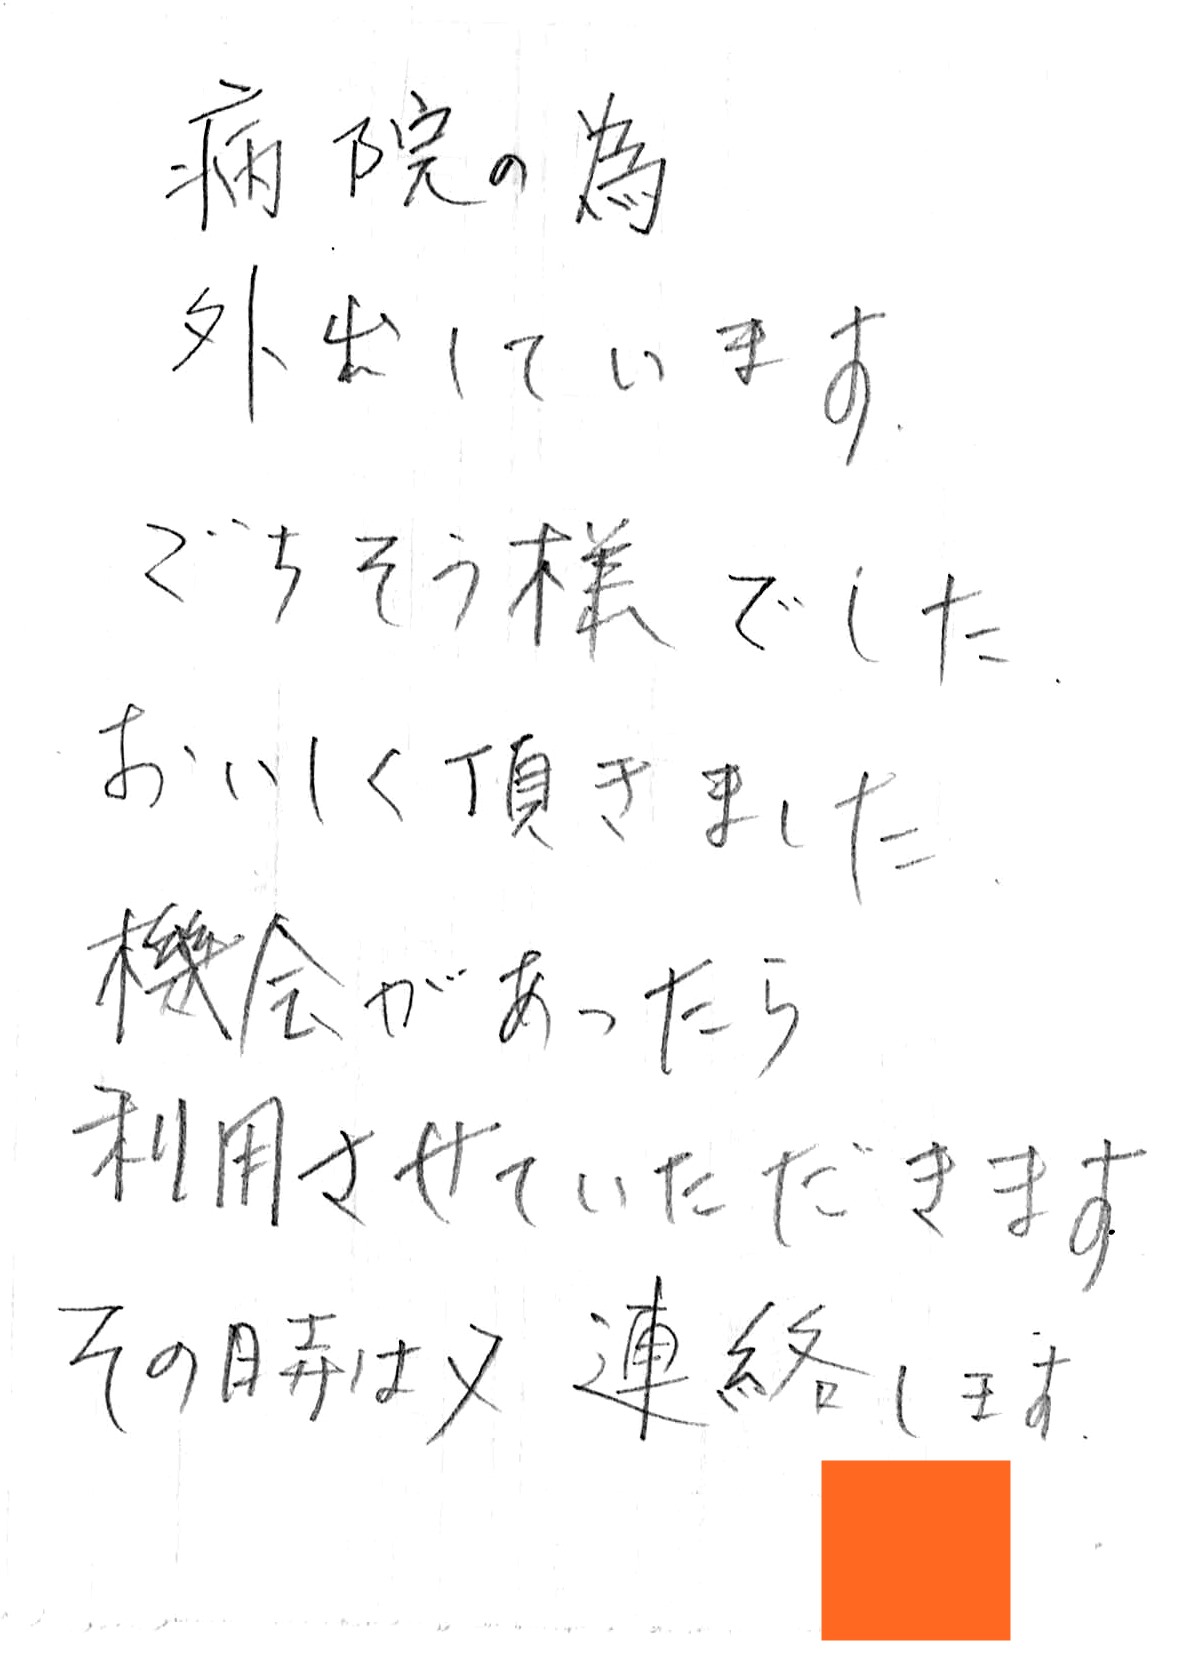 病院の為
外出しています.
ごちそう様でした.
おいしく頂きました.
機会があったら
利用させていただきます.
その時は又 連絡します.